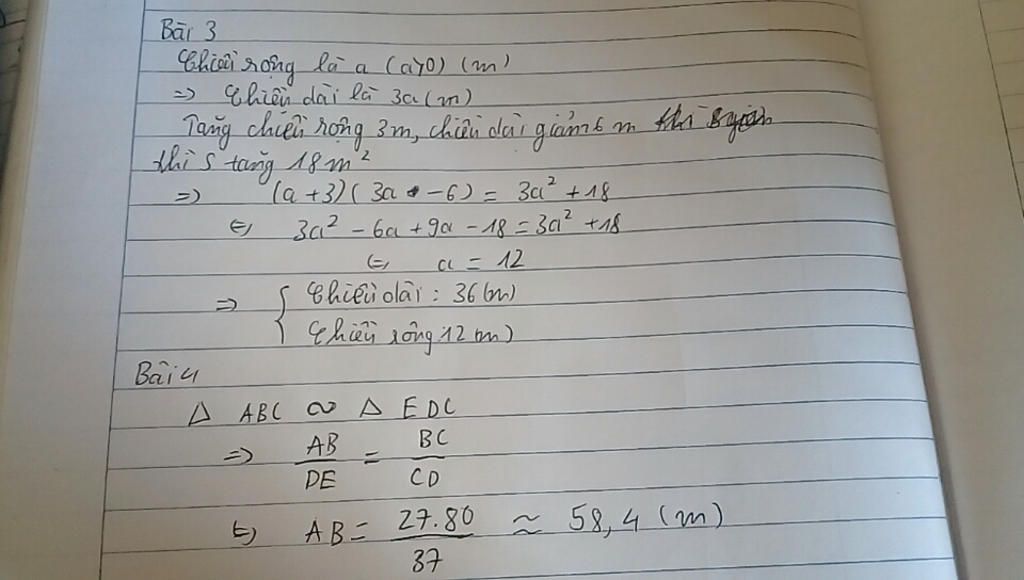 Bài 3
Chiều rộng là a (a>0) (m)
=> Chiều dài là 3a (m)
Tăng chiều rộng 3m, chiều dài giảm 6 m
thì S tăng 18 m²
=> (a + 3)(3a - 6) = 3a² + 18
<=> 3a² - 6a + 9a - 18 = 3a² + 18
<=> a = 12
=> { Chiều dài : 36 (m)
Chiều rộng 12 (m)
Bài 4
Δ ABC ∽ Δ EDC
=> AB/DE = BC/CD
<=> AB = 27.80/37 ≈ 58,4 (m)